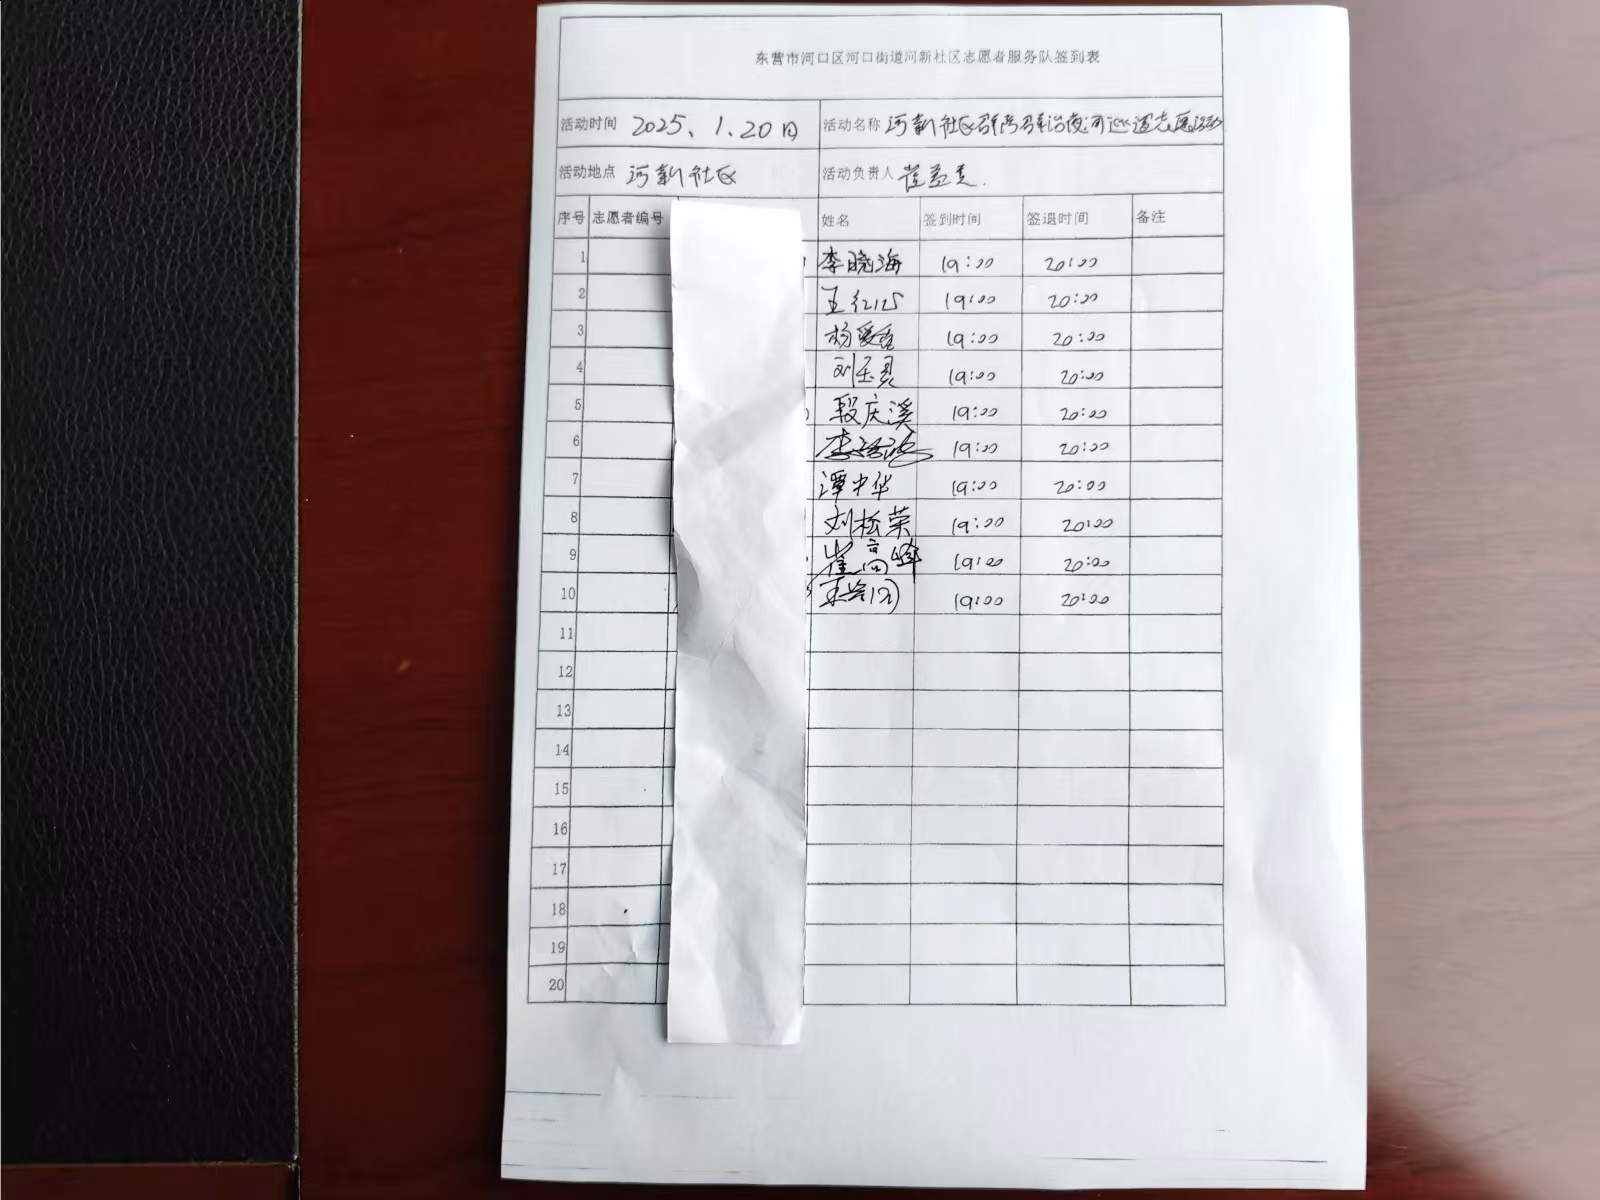 东营市河口区河口街道河新社区志愿者服务队签到表
活动时间 2025、1.20日 活动名称 河新社区群防群治夜间巡逻志愿活动
活动地点 河新社区 活动负责人 崔
序号 志愿者编号 姓名 签到时间 签退时间 备注
1 李晓海 19:00 20:00
2 王红 19:00 20:00
3 杨爱 19:00 20:00
4 刘玉灵 19:00 20:00
5 段庆溪 19:00 20:00
6 李 19:00 20:00
7 谭中华 19:00 20:00
8 刘松荣 19:00 20:00
9 崔高峰 19:00 20:00
10 19:00 20:00
11
12
13
14
15
16
17
18
19
20